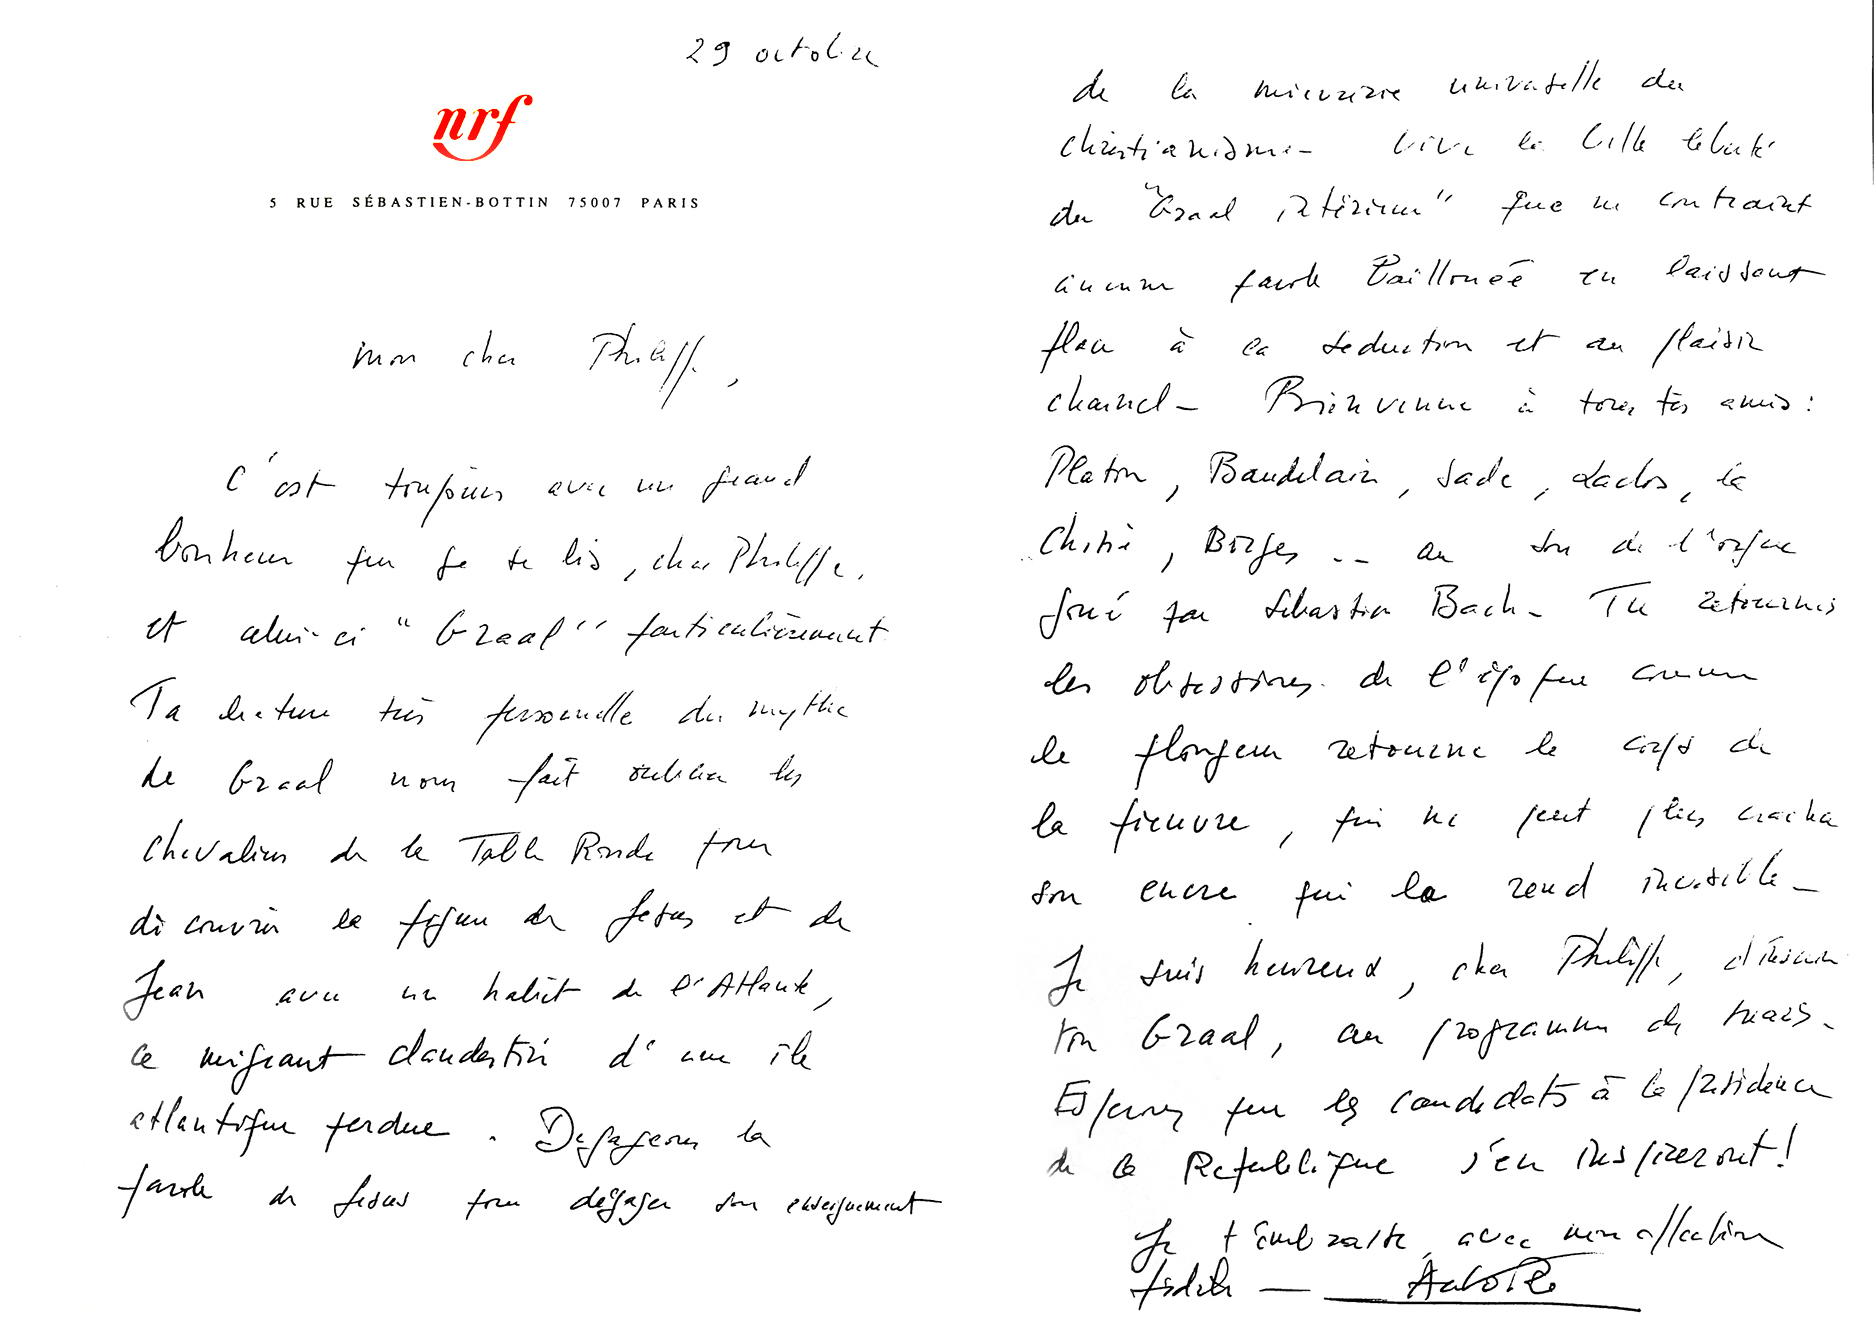 29 octobre
nrf
5 RUE SÉBASTIEN-BOTTIN 75007 PARIS
Mon cher Philippe,
C'est toujours avec un grand
bonheur que je te lis, cher Philippe,
et celui-ci "Graal" particulièrement
Ta lecture très personnelle du mythe
de Graal nous fait oublier les
chevaliers de la Table Ronde pour
découvrir la figure de Jésus et de
Jean avec un habit de l'Atlante,
ce migrant clandestin d'une île
atlantique perdue. Dégageons la
parole de Jésus pour dégager son enseignement
de la universelle du
christianisme - Vive la belle liberté
du "Graal intérieur" que ne contraint
aucune parole baillonée en laissant
place à la séduction et au plaisir
charnel - Bienvenue à tous tes amis :
Platon, Baudelaire, Sade, Laclos, la
Chine, Borges .. au son de l'orgue
joué par Sébastien Bach - Tu retournes
les obsessions de l'époque comme
le plongeur retourne le corps de
la pieuvre, qui ne peut plus cracher
son encre qui la rend invisible -
Je suis heureux, cher Philippe, d'inscrire
ton Graal, au programme de mars -
Espérons que les candidats à la présidence
de la République s'en inspireront !
Je t'embrasse avec mon affection
fidèle —